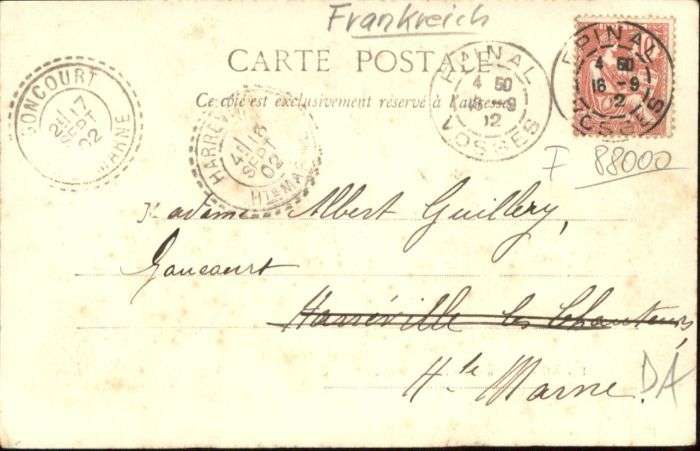 Frankreich
CARTE POSTALE
Ce côté est exclusivement réservé à l'adresse
GONCOURT
17
SEPT
02
MARNE
HARRÉV
SEPT
02
Hte MAR
EPINAL
4 50
9
02
VOSGES
EPINAL
4 50
16 - 9
02
VOSGES
F 88000
Madame Albert Guillery,
Goncourt
Harréville les Chanteurs,
Hte Marne.
DA